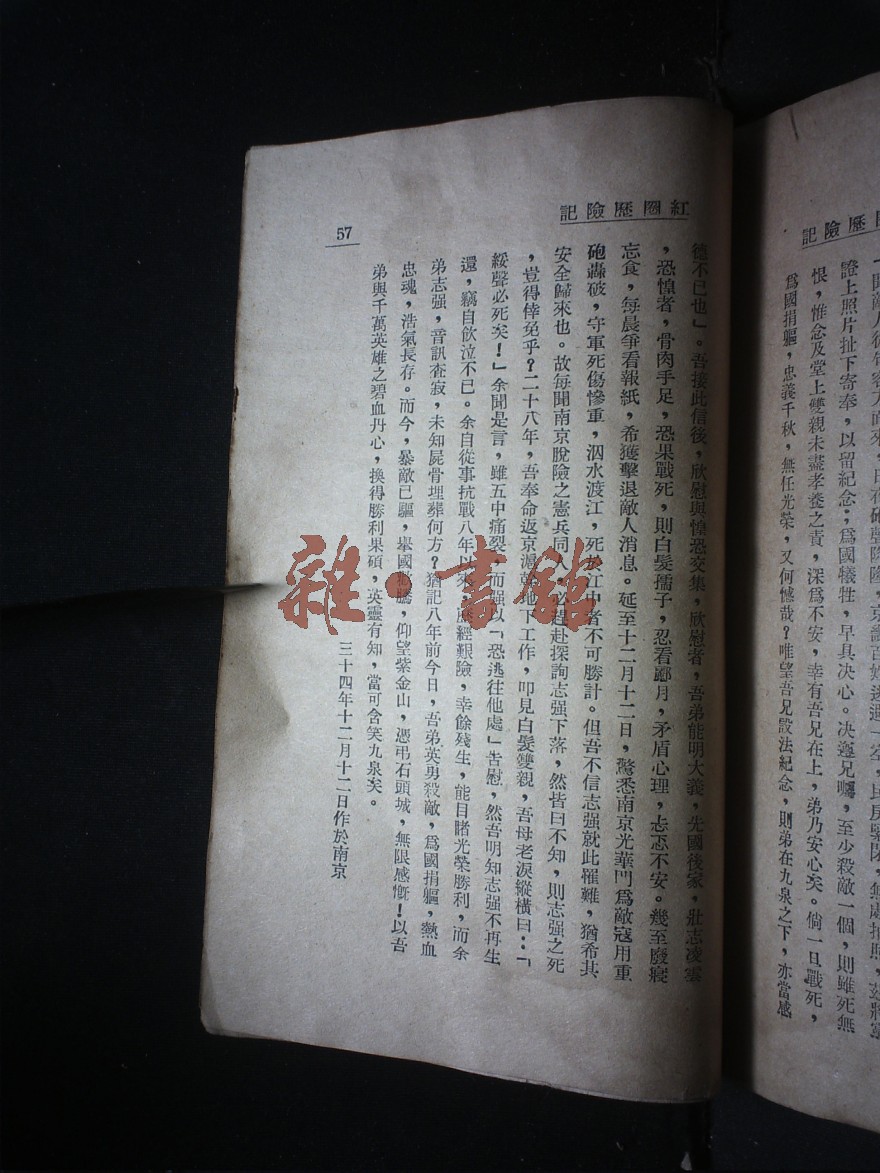 險記
「聞敵人
證上照片扯下寄奉，以留紀念；爲國犧牲，早具決心。決遵兄囑，至少殺敵一個，則雖死無
恨，惟念及堂上雙親未盡孝養之責，深爲不安，幸有吾兄在上，弟乃安心矣。倘一旦戰死，
爲國捐軀，忠義千秋，無任光榮，又何憾哉？唯望吾兄設法紀念，則弟在九泉之下，亦當感
紅圈歷險記
德不已也」。吾接此信後，欣慰與惶恐交集，欣慰者，吾弟能明大義，先國後家，壯志凌雲
，恐惶者，骨肉手足，恐果戰死，則白髮孺子，忍看酈月，矛盾心理，忐忑不安。幾至廢寢
忘食，每晨爭看報紙，希獲擊退敵人消息。延至十二月十二日，驚悉南京光華門爲敵寇用重
砲轟破，守軍死傷慘重，泅水渡江，死於江中者不可勝計。但吾不信志强就此罹難，猶希其
安全歸來也。故每聞南京脫險之憲兵同人，必趕赴探詢志强下落，然皆曰不知，則志强之死
，豈得倖免乎？二十八年，吾奉命返京滬幹地下工作，叩見白髮雙親，吾母老淚縱橫曰：「
綏聲必死矣！」余聞是言，雖五中痛裂，而强以「恐逃往他處」告慰，然吾明知志强不再生
還，竊自飲泣不已。余自從事抗戰八年以來，歷經艱險，幸餘殘生，能目睹光榮勝利，而余
弟志强，音訊查寂，未知屍骨埋葬何方？猶記八年前今日，吾弟英男殺敵，爲國捐軀，熱血
忠魂，浩氣長存。而今，暴敵已驅，舉國歡騰，仰望紫金山，憑弔石頭城，無限感慨！以吾
弟與千萬英雄之碧血丹心，換得勝利果碩，英靈有知，當可含笑九泉矣。
三十四年十二月十二日作於南京
57
雜·書館